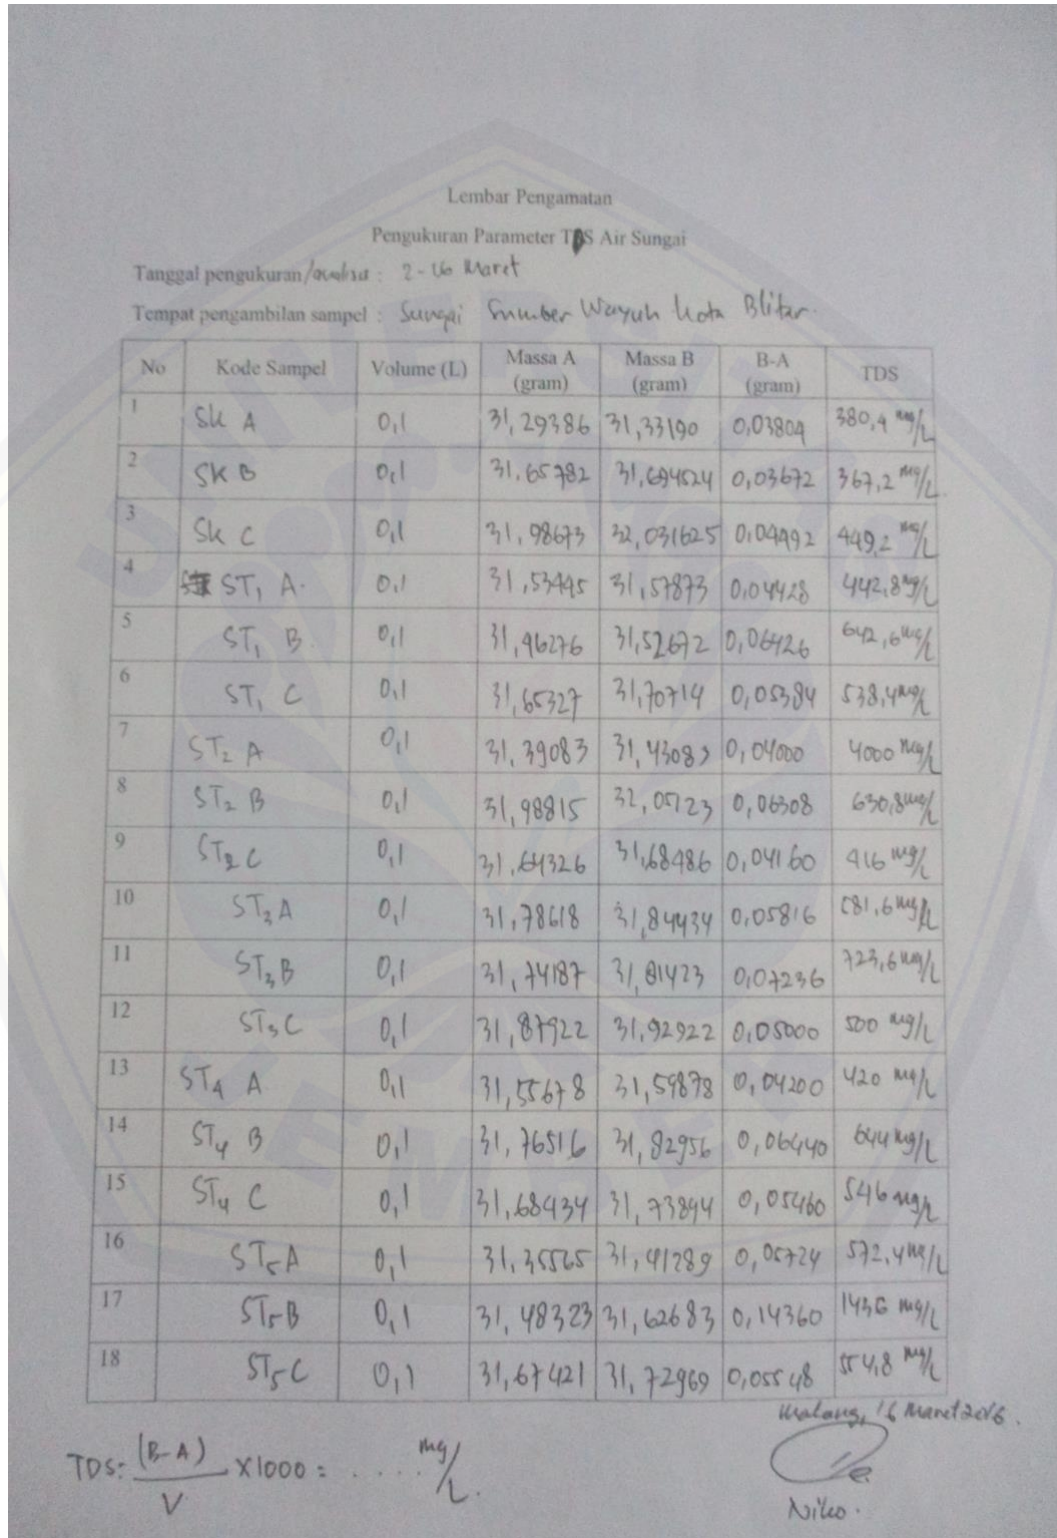 Lembar Pengamatan
Pengukuran Parameter TDS Air Sungai
Tanggal pengukuran/analisa : 2-16 Maret
Tempat pengambilan sampel : Sungai Sumber Wayuh Kota Blitar.
No Kode Sampel Volume (L) Massa A (gram) Massa B (gram) B-A (gram) TDS
1 SK A 0,1 31,29386 31,33190 0,03804 380,4 mg/L
2 SK B 0,1 31,65782 31,694524 0,03672 367,2 mg/L
3 SK C 0,1 31,98673 32,031625 0,04492 449,2 mg/L
4 ST1 A. 0,1 31,53445 31,57873 0,04428 442,8 mg/L
5 ST1 B. 0,1 31,46276 31,52672 0,06426 642,6 mg/L
6 ST1 C 0,1 31,65327 31,70714 0,05384 538,4 mg/L
7 ST2 A 0,1 31,39083 31,43083 0,04000 4000 mg/L
8 ST2 B 0,1 31,98815 32,05123 0,06308 630,8 mg/L
9 ST2 C 0,1 31,64326 31,68486 0,04160 416 mg/L
10 ST3 A 0,1 31,78618 31,84434 0,05816 581,6 mg/L
11 ST3 B 0,1 31,74187 31,81423 0,07236 723,6 mg/L
12 ST3 C 0,1 31,87922 31,92922 0,05000 500 mg/L
13 ST4 A 0,1 31,55678 31,59878 0,04200 420 mg/L
14 ST4 B 0,1 31,76516 31,82956 0,06440 644 mg/L
15 ST4 C 0,1 31,68434 31,73894 0,05460 546 mg/L
16 ST5 A 0,1 31,35565 31,41289 0,05724 572,4 mg/L
17 ST5 B 0,1 31,48323 31,62683 0,14360 1436 mg/L
18 ST5 C 0,1 31,67421 31,72969 0,05548 554,8 mg/L
Malang, 16 Maret 2016.
TDS: (B-A)/V x1000 = ..... mg/L.
Niko.